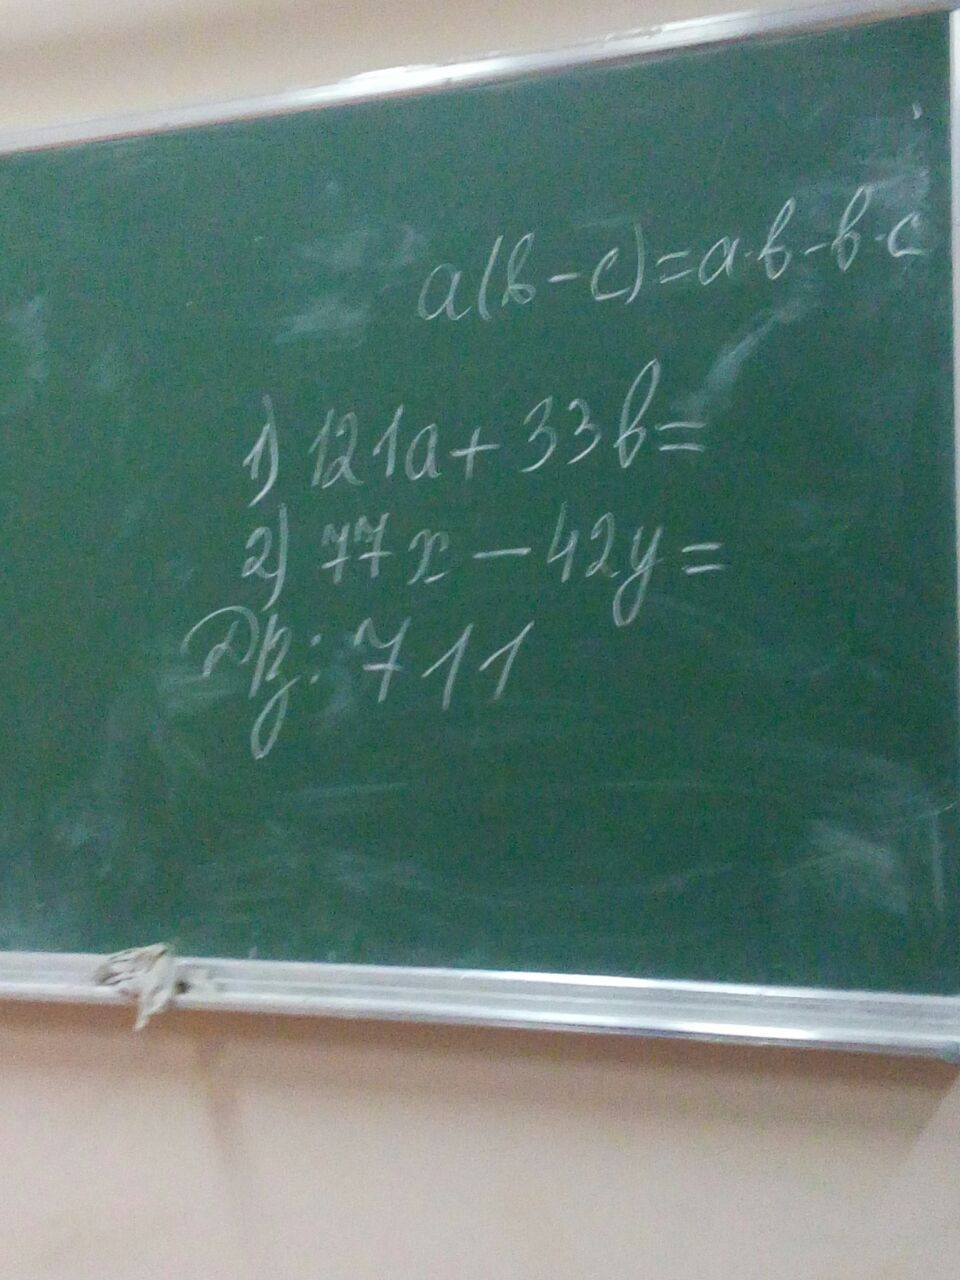 a(b-c)=a·b-b·c
1) 121a+33b=
2) 77x-42y=
Др: 711